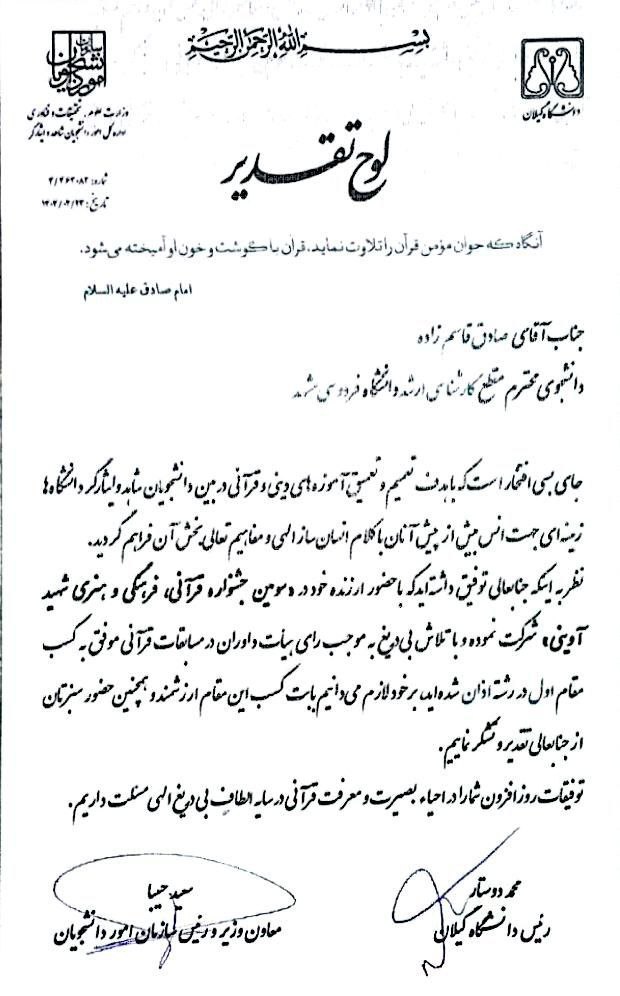 بسم الله الرحمن الرحیم
دانشگاه گیلان
سازمان امور دانشجویان
وزارت علوم، تحقیقات و فناوری
اداره کل امور دانشجویان شاهد و ایثارگر
لوح تقدیر
شماره: ۲/۴۶۳۰۸۲
آنگاه که جوان مؤمن قرآن را تلاوت نماید، قرآن با گوشت و خون او آمیخته می‌شود.
امام صادق علیه السلام
جناب آقای صادق قاسم زاده
دانشجوی محترم مقطع کارشناسی ارشد دانشگاه فردوسی مشهد
جای بسی افتخار است که با هدف تعمیم و تعمیق آموزه های دینی و قرآنی در بین دانشجویان شاهد و ایثارگر دانشگاه ها
زمینه ای جهت انس بیش از پیش آنان با کلام انسان ساز الهی و مفاهیم تعالی بخش آن فراهم گردید.
نظر به اینکه جنابعالی توفیق داشته اید که با حضور ارزنده خود در «سومین جشنواره قرآنی، فرهنگی و هنری شهید
آوینی» شرکت نموده و با تلاش بی دریغ به موجب رای هیأت داوران در مسابقات قرآنی موفق به کسب
مقام اول در رشته اذان شده اید، بر خود لازم می دانیم بابت کسب این مقام ارزشمند و همچنین حضور سبزتان
از جنابعالی تقدیر و تشکر نماییم.
توفیقات روز افزون شما را در احیاء بصیرت و معرفت قرآنی در سایه الطاف بی دریغ الهی مسئلت داریم.
محمد دوستار
رئیس دانشگاه گیلان
سعید حبیبا
معاون وزیر و رئیس سازمان امور دانشجویان